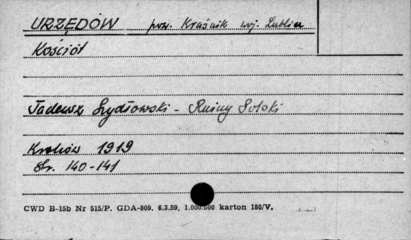 URZĘDÓW pow. Kraśnik woj. Lublin
Kościół
Tadeusz Szydłowski - Ruiny Polski
Kraków 1919
Str. 140-141
CWD B-15b Nr 515/P. GDA-809. 6.3.59, 1.000.000 karton 180/V.